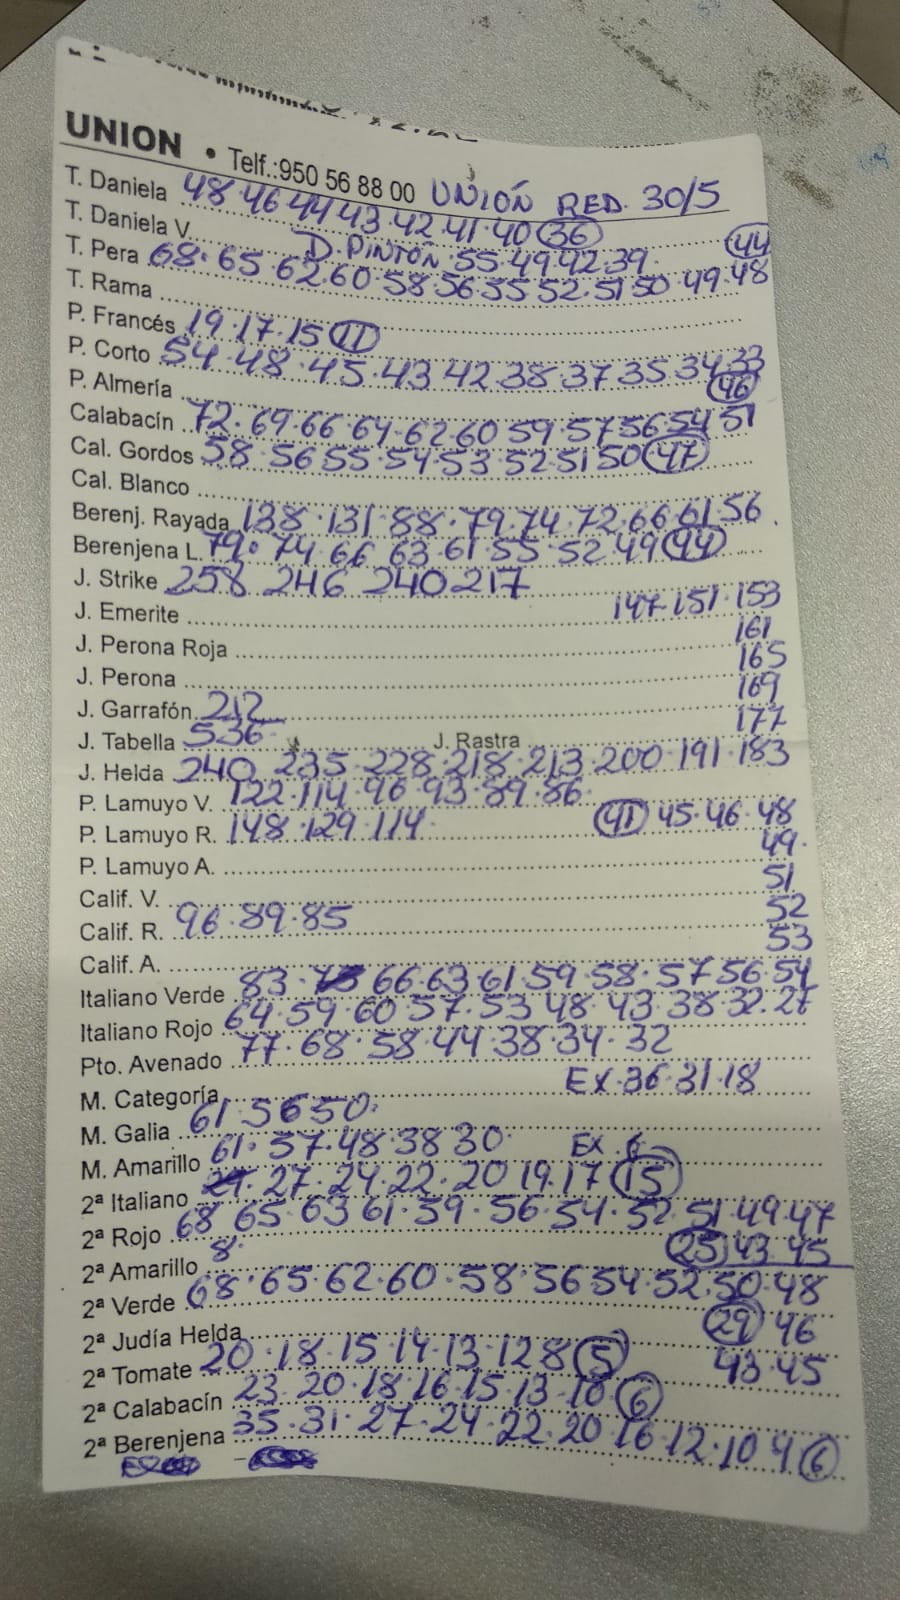 UNION • Telf.:950 56 88 00 UNIÓN RED. 30/5
T. Daniela 48·46·44·43·42·41·40 36
T. Daniela V. D. PINTÓN·55·49·42·39· 44
T. Pera 68·65 62·60·58·56·55 52·51 50·49·48
T. Rama
P. Francés 19·17·15 11
P. Corto 54·48·45·43 42·38·37 35 34·33
P. Almería 46
Calabacín 72·69·66·64·62·60 59·57 56·54 51
Cal. Gordos 58·56 55·54·53·52·51 50 47
Cal. Blanco
Berenj. Rayada 138·131·88·79·74·72·66 61·56
Berenjena L. 79·74 66 63·61·55·52·49 44
J. Strike 258 246 240 217
J. Emerite 147·151·153
J. Perona Roja 161
J. Perona 165
169
J. Garrafón 212
177
J. Tabella 536· J. Rastra
J. Helda 240 235·228·218·213·200·191·183
P. Lamuyo V. 122·114·96·93·89·86·
P. Lamuyo R. 148·129·114· 41 45·46·48
49·
P. Lamuyo A.
51
Calif. V.
52
Calif. R. 96·89·85
53
Calif. A.
Italiano Verde 83· 66·63·61·59·58·57 56·54
Italiano Rojo 64·59·60·57·53·48·43·38·32·27
Pto. Avenado 77·68·58·44·38·34·32
M. Categoría EX·36·31·18
M. Galia 61·56 50·
M. Amarillo 61·57·48·38 30· EX·6
2ª Italiano 27·24·22·20 19·17 15
2ª Rojo 68 65·63 61·59·56·54·52·51·49·47
2ª Amarillo 8· 25 43·45
2ª Verde 68·65·62·60·58·56 54·52·50·48
2ª Judía Helda 29 46
2ª Tomate 20·18·15·14·13·12 8 5 43·45
2ª Calabacín 23·20·18·16·15·13·10 6
2ª Berenjena 35·31·27·24·22·20·16·12·10 9 6